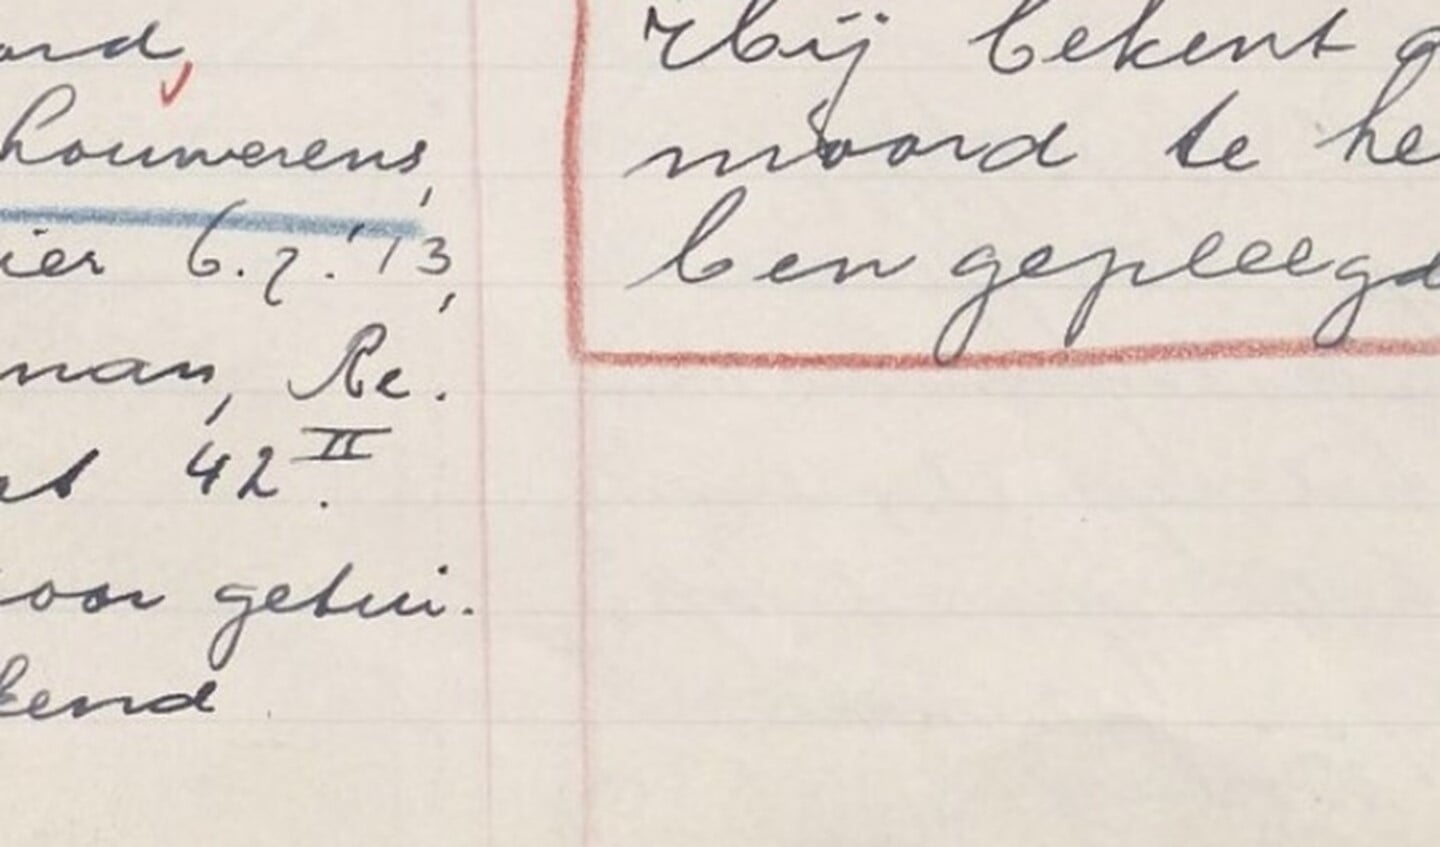 ord,
houwerens,
ier 6.7.'13,
man, Re.
at 42 II.
oor getui.
kend
bij bekent
moord te he
ben gepleegd